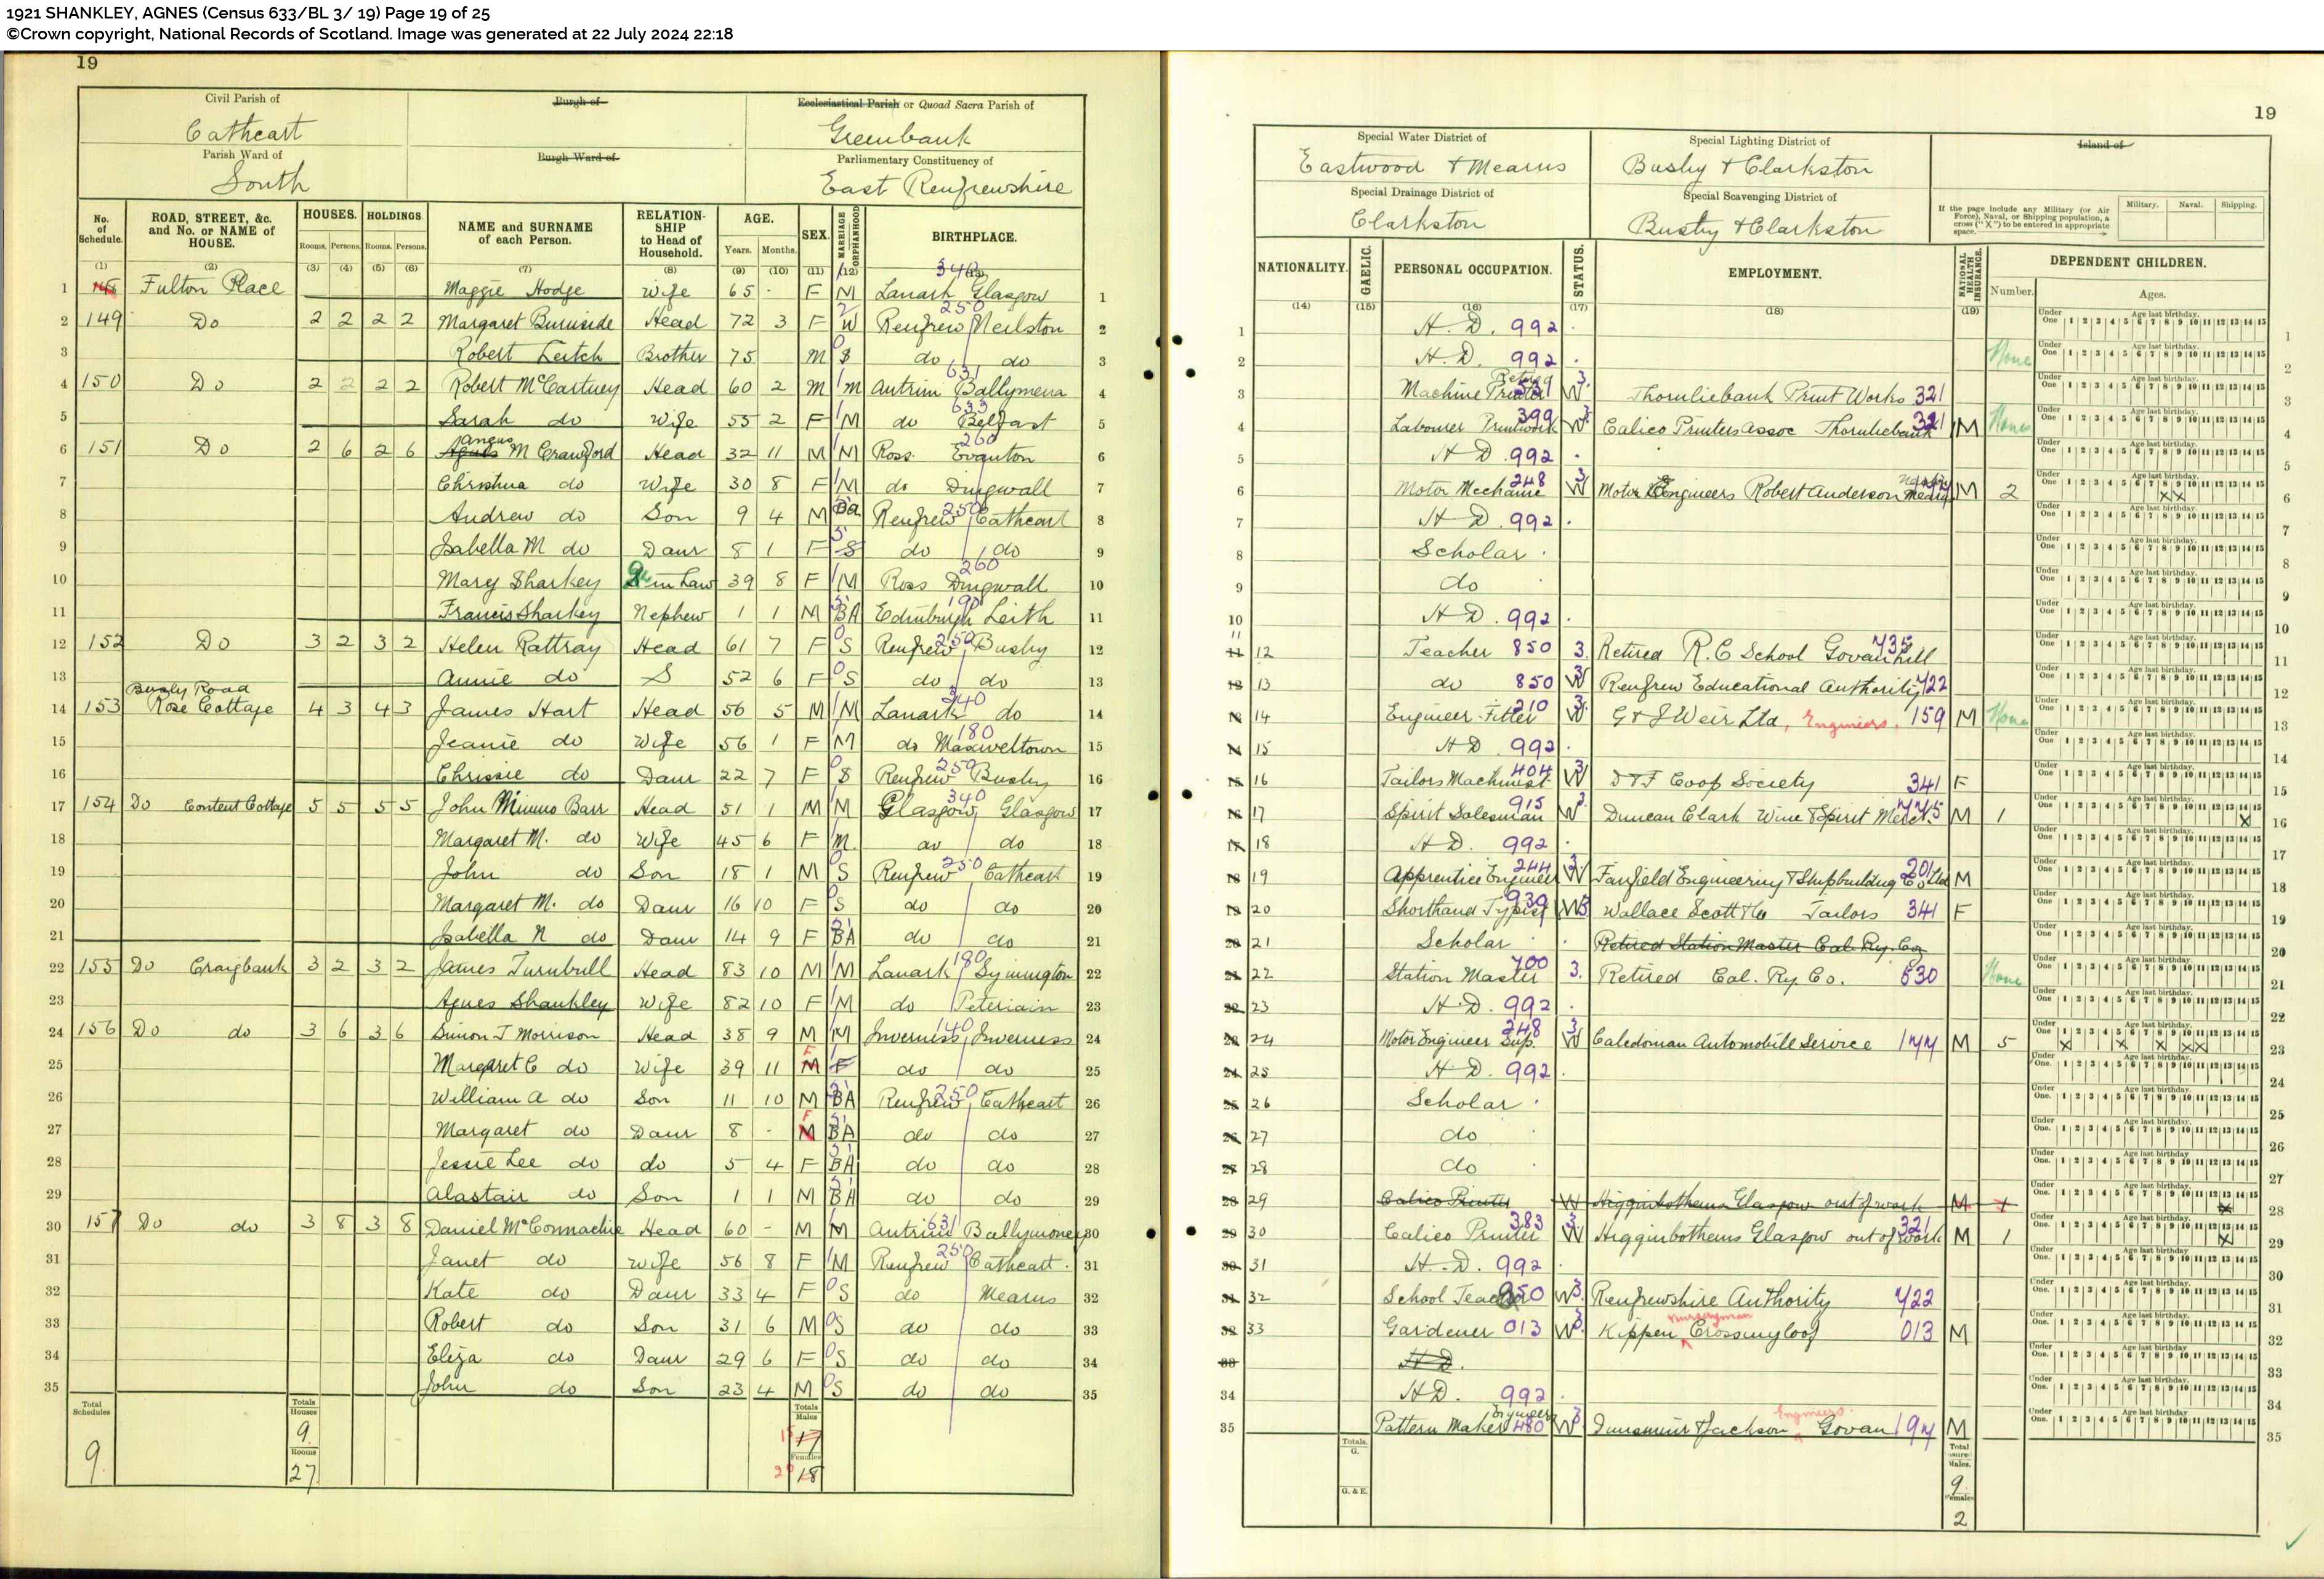 1921 SHANKLEY, AGNES (Census 633/BL 3/ 19) Page 19 of 25
©Crown copyright, National Records of Scotland. Image was generated at 22 July 2024 22:18
19
Civil Parish of Cathcart
Burgh of
Ecclesiastical Parish or Quoad Sacra Parish of Greenbank
Parish Ward of South
Burgh Ward of
Parliamentary Constituency of East Renfrewshire
No. of Schedule. ROAD, STREET, &c. and No. or NAME of HOUSE. HOUSES. Rooms. Persons. HOLDINGS Rooms. Persons. NAME and SURNAME of each Person. RELATIONSHIP to Head of Household. AGE. Years. Months. SEX. MARRIAGE or ORPHANHOOD BIRTHPLACE.
(1) (2) (3) (4) (5) (6) (7) (8) (9) (10) (11) (12)
1 148 Fulton Place Maggie Hodge Wife 65 - F M Lanark Glasgow 340 1
2 149 Do 2 2 2 2 Margaret Burnside Head 72 3 F W Renfrew Neilston 250 2
3 Robert Leitch Brother 75 M S do do 3
4 150 Do 2 2 2 2 Robert McCartney Head 60 2 M M Antrim Ballymena 631 4
5 Sarah do Wife 55 2 F M do Belfast 633 5
6 151 Do 2 6 2 6 Agnes Angus M Crawford Head 32 11 M M Ross Evanton 260 6
7 Christina do Wife 30 8 F M do Dingwall 7
8 Andrew do Son 9 4 M BA Renfrew Cathcart 250 8
9 Isabella M do Daur 8 1 F S do do 9
10 Mary Sharkey S in Law 39 8 F M Ross Dingwall 260 10
11 Francis Sharkey Nephew 1 1 M BA Edinburgh Leith 190 11
12 152 Do 3 2 3 2 Helen Rattray Head 61 7 F S Renfrew Busby 250 12
13 Annie do S 52 6 F S do do 13
14 153 Busby Road Rose Cottage 4 3 4 3 James Hart Head 56 5 M M Lanark do 340 14
15 Jeanie do Wife 56 1 F M do Maxweltown 180 15
16 Chrissie do Daur 22 7 F S Renfrew Busby 250 16
17 154 Do Content Cottage 5 5 5 5 John Minnus Barr Head 51 1 M M Glasgow Glasgow 340 17
18 Margaret M. do Wife 45 6 F M do do 18
19 John do Son 18 1 M S Renfrew Cathcart 250 19
20 Margaret M. do Daur 16 10 F S do do 20
21 Isabella N do Daur 14 9 F BA do do 21
22 155 Do Craigbank 3 2 3 2 James Turnbull Head 83 10 M M Lanark Symington 190 22
23 Agnes Shankley Wife 82 10 F M do 23
24 156 Do do 3 6 3 6 Simon J Morrison Head 38 9 M M Inverness Inverness 140 24
25 Margaret C do Wife 39 11 M F F do do 25
26 William A do Son 11 10 M BA Renfrew Cathcart 250 26
27 Margaret do Daur 8 - M F BA do do 27
28 Jessie Lee do do 5 4 F BA do do 28
29 Alastair do Son 1 1 M BA do do 29
30 157 Do do 3 8 3 8 Daniel McConnachie Head 60 - M M Antrim Ballymoney 631 30
31 Janet do Wife 56 8 F M Renfrew Cathcart 250 31
32 Kate do Daur 33 4 F S do Mearns 32
33 Robert do Son 31 6 M S do do 33
34 Eliza do Daur 29 6 F S do do 34
35 John do Son 23 4 M S do do 35
Total Schedules 9
Totals Houses 9
Rooms 27
Totals Males 17
Females 18
19
Special Water District of Eastwood & Mearns
Special Lighting District of Busby & Clarkston
Island of
Special Drainage District of Clarkston
Special Scavenging District of Busby & Clarkston
If the page include any Military (or Air Force), Naval, or Shipping population, a cross ("X") to be entered in appropriate space. Military. Naval. Shipping.
NATIONALITY. GAELIC. PERSONAL OCCUPATION. STATUS. EMPLOYMENT. NATIONAL HEALTH INSURANCE. DEPENDENT CHILDREN. Number. Ages.
(14) (15) (16) (17) (18) (19)
Under One Age last birthday. 1 2 3 4 5 6 7 8 9 10 11 12 13 14 15
1 H. D. 992
2 H. D. 992 None
3 Machine Printer W Thornliebank Print Works 321
4 Labourer Printwork 399 W Calico Printers Assoc Thornliebank 321 M None
5 H D 992
6 Motor Mechanic 248 W Motor Engineers Robert Anderson M 2 X X
7 H D. 992
8 Scholar
9 do
10 H D. 992
11 12 Teacher 850 3 Retired R.C School Govanhill 735
13 do 850 W Renfrew Educational Authority 722
14 Engineer Fitter 210 W G & J Weir Ltd, Engineers. 159 M None
15 H D 992
16 Tailors Machinist 404 W D & F Coop Society 341 F
17 Spirit Salesman 915 W Duncan Clark Wine & Spirit Mercht M 1 X
18 H D. 992
19 Apprentice Engineer 244 W Fairfield Engineering & Shipbuilding Co Ltd 201 M
20 Shorthand Typist 939 W Wallace Scott & Co Tailors 341 F
21 Scholar Retired Station Master Cal. Ry. Co
22 Station Master 700 3. Retired Cal. Ry Co. None
23 H D. 992
24 Motor Engineer Sup. 248 W Caledonian Automobile Service 177 M 5 X X X X X
25 H D. 992
26 Scholar
27 do
28 do
29 Calico Printer W Higginbothams Glasgow out of work M 1 X
30 Calico Printer 383 W Higginbothams Glasgow out of work 321 M 1 X
31 H. D. 992
32 School Teacher 850 W Renfrewshire Authority 722
33 Gardener 013 W Kippen Nurseryman Crossmyloof 013 M
H D.
34 H D. 992
35 Pattern Maker Engineer 480 W Dunsmuir & Jackson Engineers Govan M
Totals. G.
G. & E.
Total Males. 9
Females 2